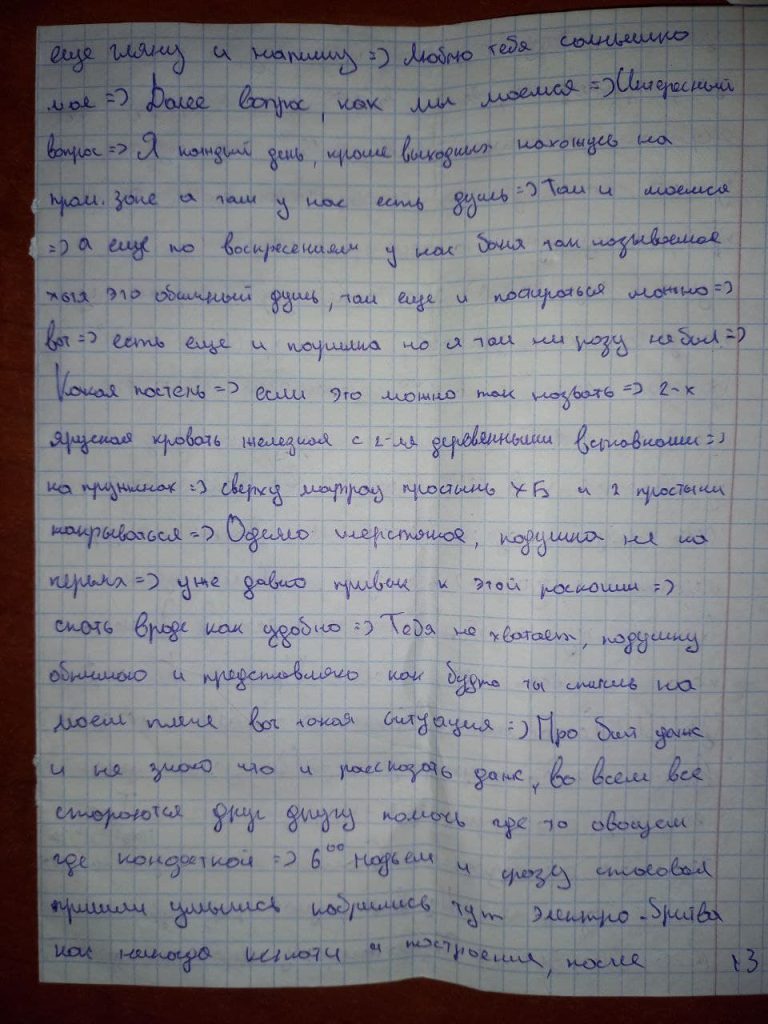 еще гляну и напишу =) Люблю тебя солнышко
мое =) Далее вопрос, как мы моемся =) Интересный
вопрос =) Я каждый день, кроме выходных нахожусь на
пром. зоне и там у нас есть душь =) Там и моемся
=) а еще по воскресениям у нас баня так называемая
хотя это обычный душь, там еще и постираться можно =)
вот =) есть еще и парилка но я там ни разу не был =)
Какая постель =) если это можно так назвать =) 2-х
ярусная кровать железная с 2-мя деревянными вставками =)
на пружинах =) сверху матрац простынь ХБ и 2 простыни
накрываться =) Одеяло шерстяное, подушка не на
перьях =) уже давно привык к этой роскоши =)
спать вроде как удобно =) Тебя не хватает, подушку
обнимаю и представляю как будто ты спишь на
моем плече вот такая ситуация =) Про быт даже
и не знаю что и рассказать даже, во всем все
стараются друг другу помочь где то овощем
где конфеткой =) 6⁰⁰ подьем и сразу столовая
пришли умылись побрились тут электро-бритва
как никогда кстати и построение, после
13